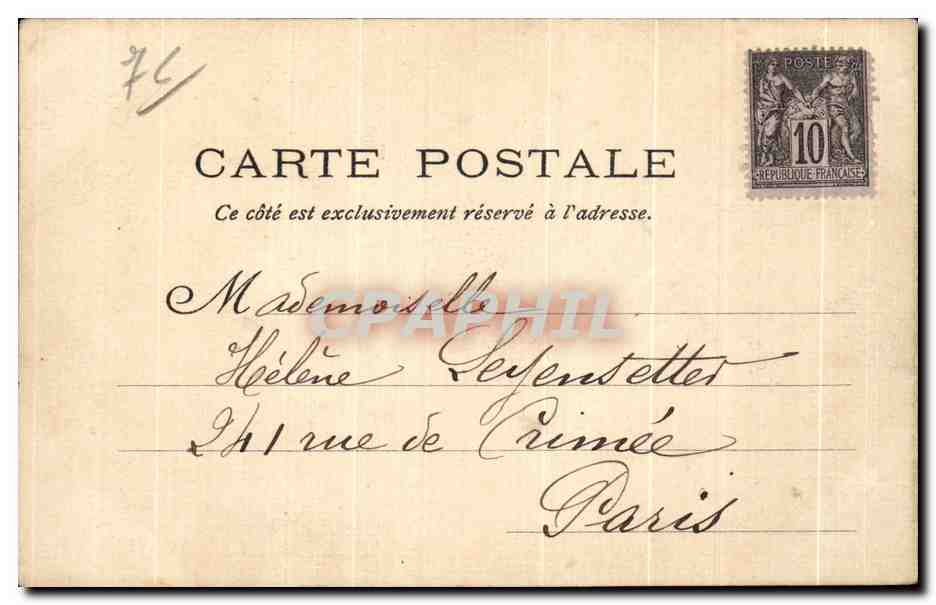 7c
POSTE
10
REPUBLIQUE FRANÇAISE
CARTE POSTALE
Ce côté est exclusivement réservé à l'adresse.
Mademoiselle
CPAPHIL
Hélène Leyensetter
241 rue de Crimée
Paris